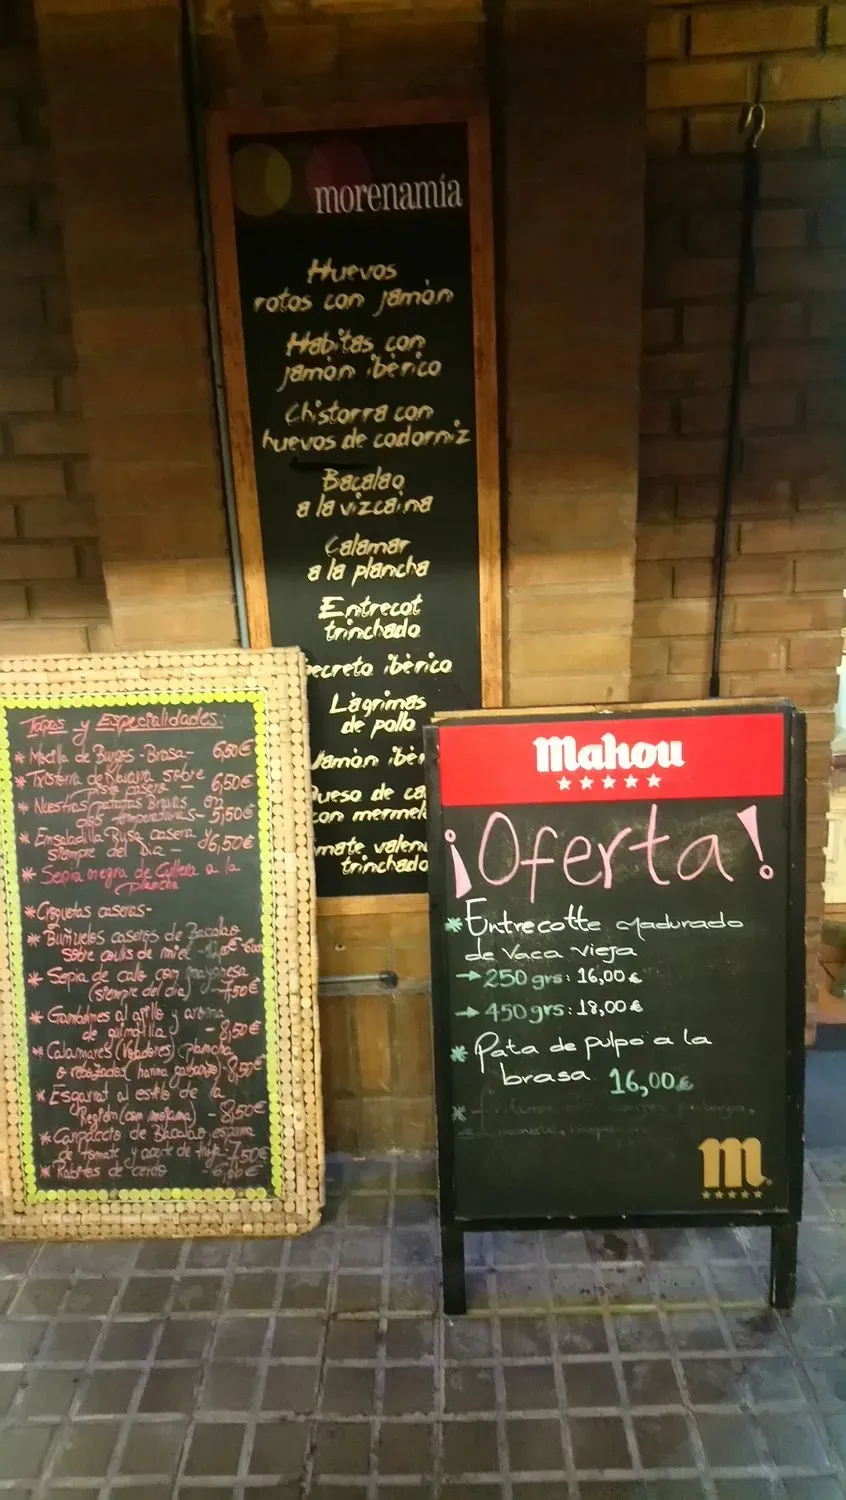 morenamía
Huevos
rotos con jamón
Habitas con
jamón ibérico
Chistorra con
huevos de codorniz
Bacalao
a la vizcaina
Calamar
a la plancha
Entrecot
trinchado
ecreto ibérico
Lágrimas
de pollo
Jamón ibér
ueso de ca
con mermela
mate valen
trinchado
Tapas y Especialidades:
* Morcilla de Burgos - Brasa - 6,50€
* Txistorra de Navarra sobre
pisto casero - 6,50€
* Nuestras patatas Bravas en
dos temperaturas - 5,50€
* Ensaladilla Rusa casera y
siempre del Dia - 6,50€
* Sepia negra de Cullera a la
plancha
* Croquetas caseras -
* Buñuelos caseros de Bacalao
sobre coulis de miel
* Sepia de calo con mayonesa
(siempre del dia) - 7,50€
* Gambones al ajillo y aroma
de guindilla - 8,50€
* Calamares (Voladores) plancha
o rebozados (harina garbanzo) - 8,50€
* Esgarrat al estilo de la
Región (con mojama) - 8,50€
* Carpaccio de Bacalao, espuma
de tomate y aceite de trufa 7,50€
* Rabitos de cerdo - 6,00€
Mahou
¡Oferta!
* Entrecotte Madurado
de vaca vieja
→ 250 grs: 16,00€
→ 450 grs: 18,00€
* Pata de pulpo a la
brasa 16,00€
m